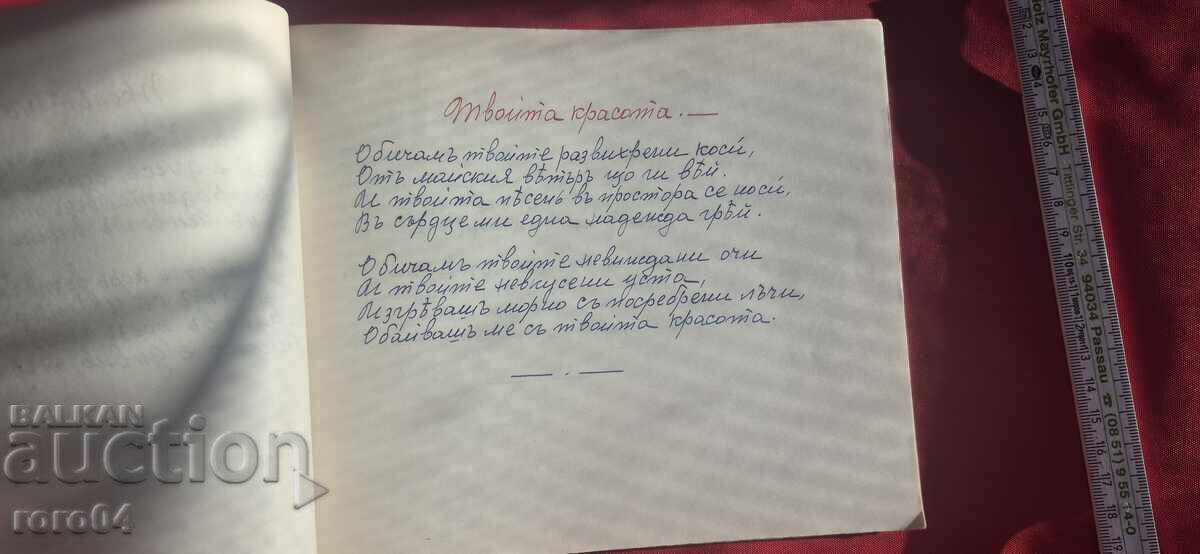 Твойта красота. —
Обичамъ твойте развихрени коси́,
Отъ майския вѣтъръ що ги вѣй.
И твойта пѣсень въ простора се носи́,
Въ сърдце ми една надежда грѣй.
Обичамъ твойте невиждани очи
И твойте невкусени уста,
Изгрѣвашъ морно съ посребрени лъчи,
Обайвашъ ме съ твойта красота.
— . —
BALKAN
auction
roro04
Mayrhofer GmbH, Tittlinger Str. 34 94034 Passau ☎ (08 51) 9 55 14-0